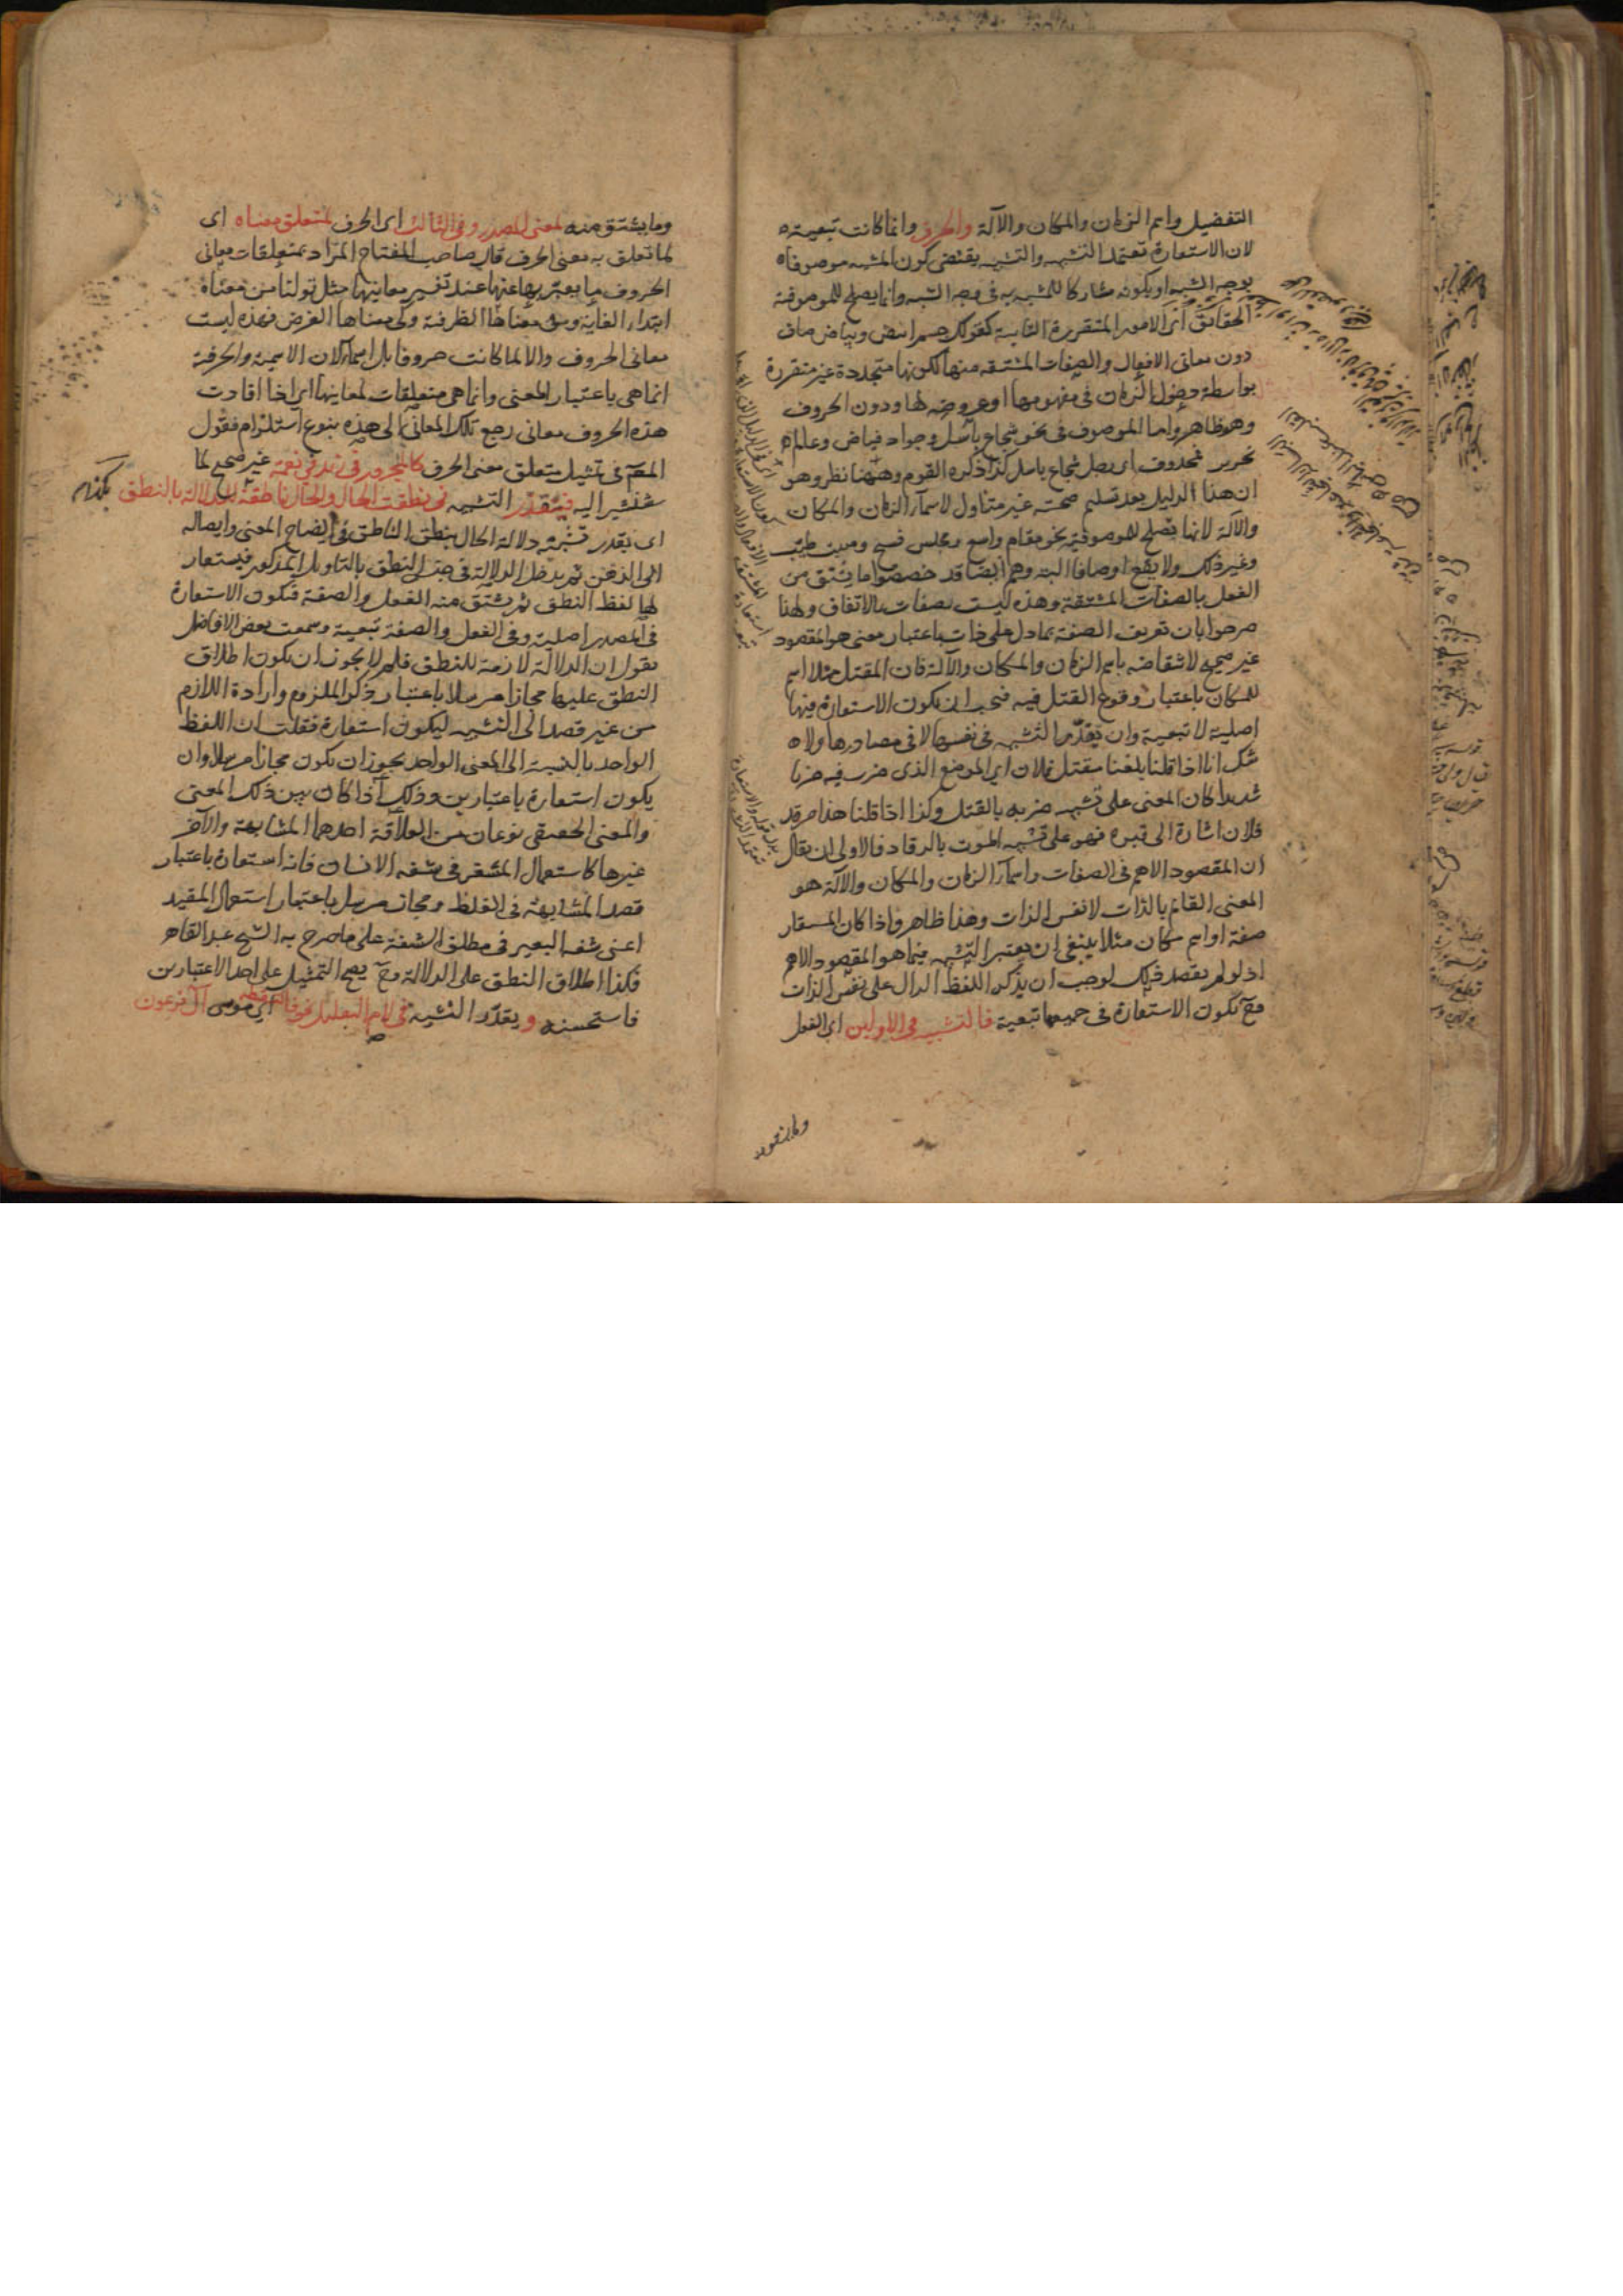 التفضيل واسم الزمان والمكان والآلة والحرف وانما كانت تبعية
لان الاستعارة تعتمد التشبيه والتشبيه يقتضى كون المشبه موصوفا
بوجه الشبه او بكونه مشاركا للمشبه به فى وجه الشبه وانما يصلح للموصوفية
الحقائق اى الامور المتقررة الثابتة كقولك جسم ابيض وبياض صاف
دون معانى الافعال والصفات المشتقة منها لكونها متجددة غير متقررة
بواسطة دخول الزمان فى مفهومها او عروضه لها ودون الحروف
وهو ظاهر واما الموصوف فى نحو شجاع باسل وجواد فياض وعالم
نحرير فمحذوف اى رجل شجاع باسل كذا ذكره القوم وههنا نظر وهو
ان هذا الدليل بعد تسليم صحته غير متناول لاسماء الزمان والمكان
والآلة لانها تصلح للموصوفية نحو مقام واسع ومجلس فسيح ومبيت طيب
وغير ذلك ولا يقع اوصافا البتة وهم ايضا قد خصصوا ما يشتق من
الفعل بالصفات المشتقة وهذه ليست بصفات بالاتفاق ولهذا
صرحوا بان تعريف الصفة بما دل على ذات باعتبار معنى هو المقصود
غير صحيح لانتقاضه باسم الزمان والمكان والآلة فان المقتل مثلا اسم
للمكان باعتبار وقوع القتل فيه فيجب ان تكون الاستعارة فيها
اصلية لا تبعية وان يقدر التشبيه فى نفسها لا فى مصادرها ولا
شك انا اذا قلنا بلغنا مقتل فلان اى الموضع الذى ضرب فيه ضربا
شديدا كان المعنى على تشبيه ضربه بالقتل وكذا اذا قلنا هذا مرقد
فلان اشارة الى قبره فهو على تشبيه الموت بالرقاد فالاولى ان يقال
ان المقصود الاهم فى الصفات واسماء الزمان والمكان والآلة هو
المعنى القائم بالذات لا نفس الذات وهذا ظاهر واذا كان المستعار
صفة او اسم مكان مثلا ينبغى ان يعتبر التشبيه فيما هو المقصود الاهم
اذ لو لم يقصد ذلك لوجب ان يذكر اللفظ الدال على نفس الذات
فح تكون الاستعارة فى جميعها تبعية فالتشبيه فى الاولين اى الفعل
وما يشتق منه لمعنى المصدر وفى الثالث اى الحرف لمتعلق معناه اى
لما تعلق به معنى الحرف قال صاحب المفتاح المراد بمتعلقات معانى
الحروف ما يعبر بها عنها عند تفسير معانيها مثل قولنا من معناه
ابتداء الغاية وفى معناها الظرفية وكى معناها الغرض فهذه ليست
معانى الحروف والا لما كانت حروفا بل اسماء لان الاسمية والحرفية
انما هى باعتبار المعنى وانما هى متعلقات لمعانيها اى اذا افادت
هذه الحروف معانى رجع تلك المعانى الى هذه بنوع استلزام فقول
المصم فى تمثيل متعلق معنى الحرف كالمجرور فى زيد فى نعمة غير صحيح لما
سنشير اليه فيقدر التشبيه فى نطقت الحال والحال ناطقة بكذا للدلالة بالنطق
اى يقدر تشبيه دلالة الحال بنطق الناطق فى ايضاح المعنى وايصاله
الى الذهن ثم يدخل الدلالة فى جنس النطق بالتاويل المذكور فيستعار
لها لفظ النطق ثم يشتق منه الفعل والصفة فتكون الاستعارة
فى المصدر اصلية وفى الفعل والصفة تبعية وسمعت بعض الافاضل
يقول ان الدلالة لازمة للنطق فلم لا يجوز ان يكون اطلاق
النطق عليها مجازا مرسلا باعتبار ذكر الملزوم وارادة اللازم
من غير قصد الى التشبيه ليكون استعارة فقلت ان اللفظ
الواحد بالنسبة الى المعنى الواحد يجوز ان يكون مجازا مرسلا وان
يكون استعارة باعتبارين وذلك اذا كان بين ذلك المعنى
والمعنى الحقيقى نوعان من العلاقة احدهما المشابهة والآخر
غيرها كاستعمال المشفر فى شفة الانسان فانه استعارة باعتبار
قصد المشابهة فى الغلظ ومجاز مرسل باعتبار استعمال المقيد
اعنى شفة البعير فى مطلق الشفة على ما صرح به الشيخ عبد القاهر
فكذا اطلاق النطق على الدلالة فح يصح التمثيل على احد الاعتبارين
فاستحسنه ويقدر التشبيه فى لام التعليل نحو فالتقطه اى موسى آل فرعون